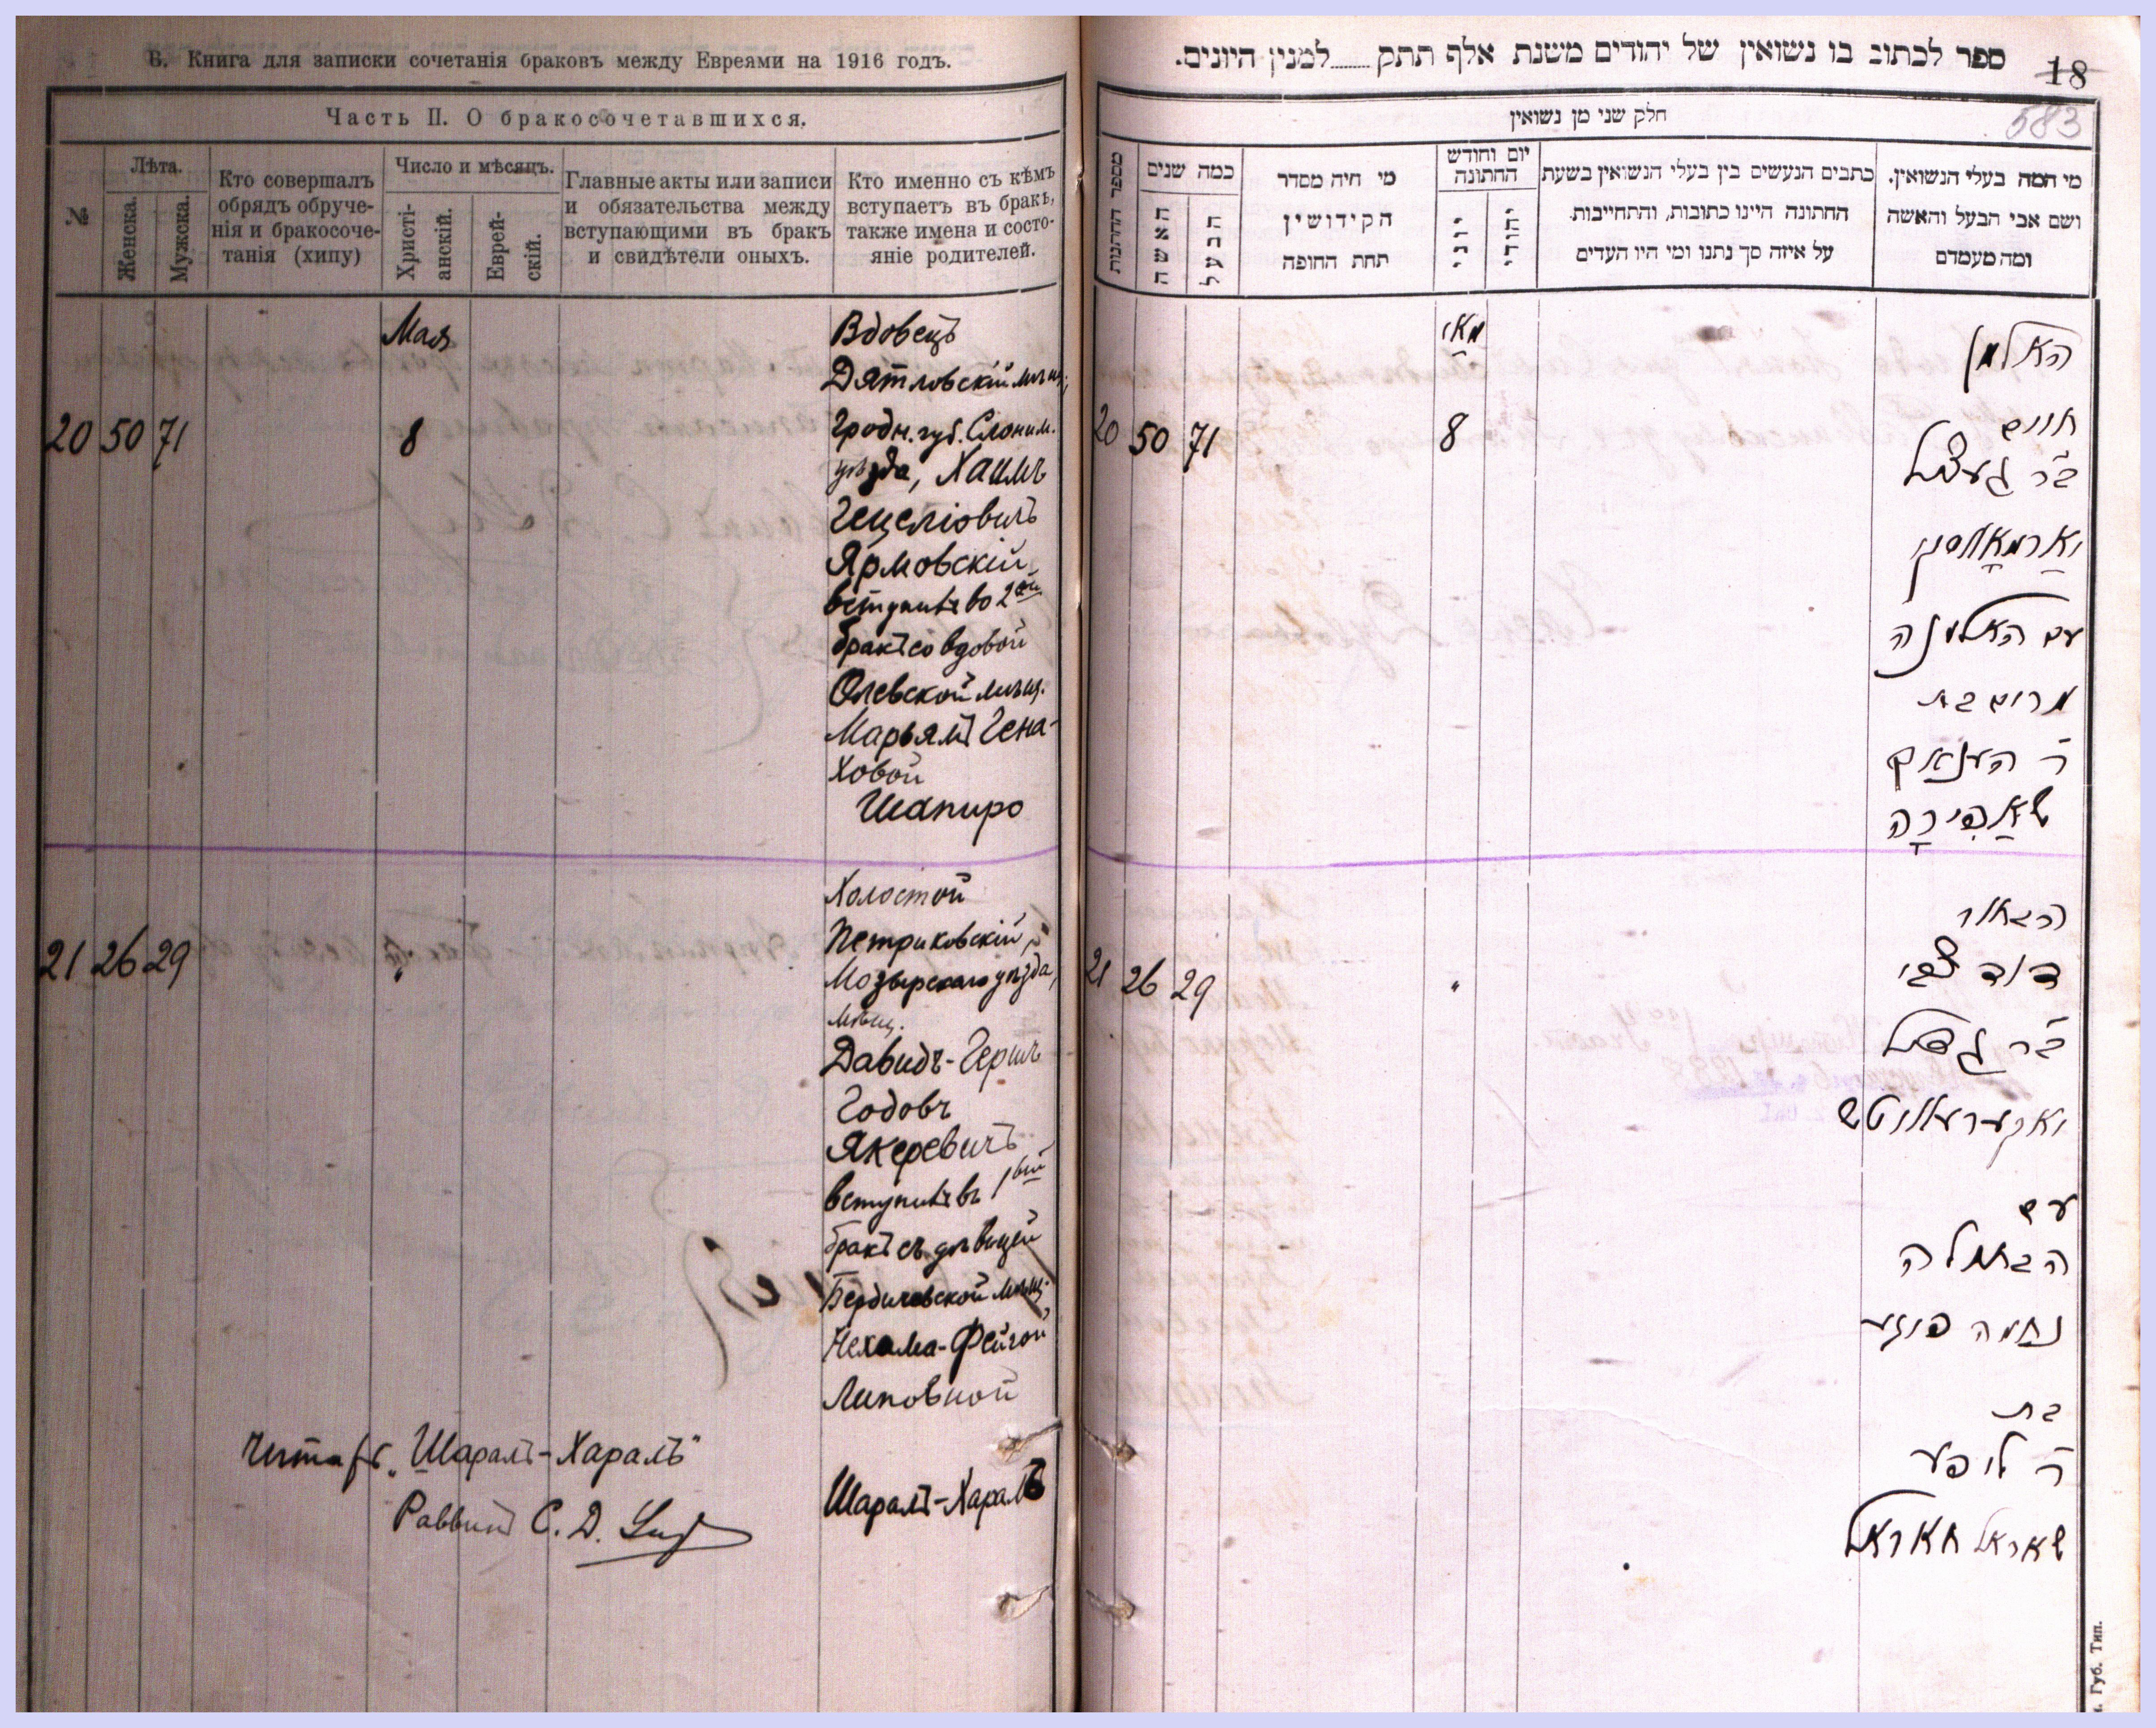 В. Книга для записки сочетанія браковъ между Евреями на 1916 годъ.
Часть II. О бракосочетавшихся.
№
Лѣта.
Женска.
Мужска.
Кто совершалъ
обрядъ обруче-
нія и бракосоче-
танія (хипу)
Число и мѣсяцъ.
Христі-
анскій.
Еврей-
скій.
Главные акты или записи
и обязательства между
вступающими въ бракъ
и свидѣтели оныхъ.
Кто именно съ кѣмъ
вступаетъ въ бракъ,
также имена и состо-
яніе родителей.
Мая
Вдовецъ
Дятловскій мѣщ.
20 50 71 8 Гродн. губ. Слоним.
уѣзда, Хаимъ
Гецеліовичъ
Ярмовскій
вступилъ во 2ой
бракъ со вдовой
Олевской мѣщ.
Марьямъ Гена-
ховой
Шапиро
Холостой
Петриковскій,
21 26 29 " Мозырскаго уѣзда,
мѣщ.
Давидъ-Гершъ
Годовъ
Якеревичъ
вступилъ въ 1ый
бракъ съ дѣвицей
Бердичевской мѣщ.
Нехама-Фейгой
Липовной
Шарапъ-Харапъ
"Шарапъ-Харапъ"
Раввинъ С. Д.
ספר לכתוב בו נשואין של יהודים משנת אלף תתק......למנין היונים.
18
583
חלק שני מן נשואין
מספר החתונות
כמה שנים
האשה
הבעל
מי היה מסדר
הקידושין
תחת החופה
יום וחודש
החתונה
יוני
יהודי
כתבים הנעשים בין בעלי הנשואין בשעת
החתונה היינו כתובות, והתחייבות
על איזה סך נתנו ומי היו העדים
מי המה בעלי הנשואין.
ושם אבי הבעל והאשה
ומה מעמדם
מאי
האלמן
20 50 71 8 חיים
ב"ר געצל
יארמאווסקי
עם האלמנה
מרים בת
ר' הענאך
שאַפּירָה
הבחור
21 26 29 " דוד צבי
ב"ר גדל
יאקערעוויטש
עם
הבתולה
נחמה פייגע
בת
ר' ליפע
שאראפ חאראפ
Губ. Тип.